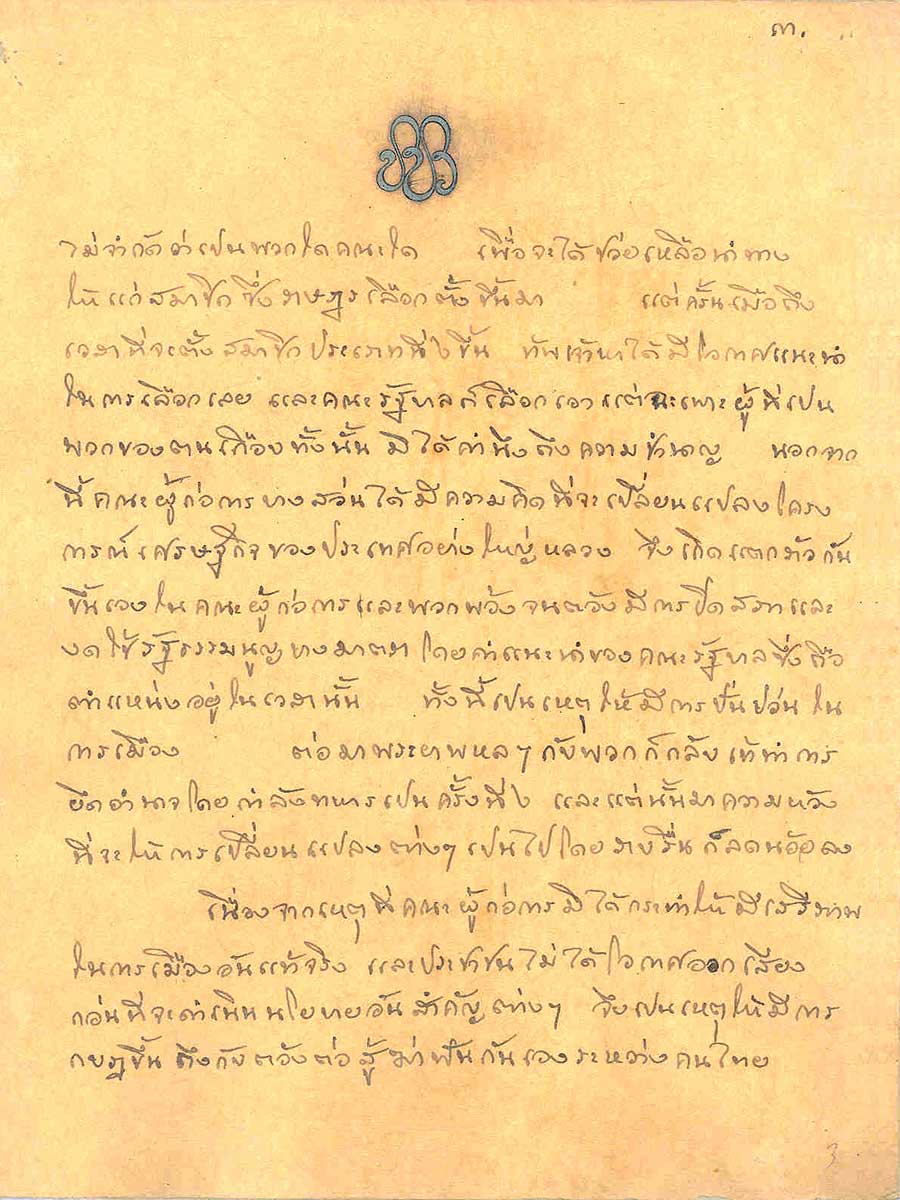 ๓.
ไม่จำกัดว่าเปนพวกใดคณะใด เพื่อจะได้ช่วยเหลือนำทาง
ให้แก่สมาชิกซึ่งราษฎรเลือกตั้งขึ้นมา แต่ครั้นเมื่อถึง
เวลาที่จะตั้งสมาชิกประเภทที่ ๒ ขึ้น ข้าพเจ้าหาได้มีโอกาศแนะนำ
ในการเลือกเลย และคณะรัฐบาลก็เลือกเอาแต่ฉะเพาะผู้ที่เปน
พวกของตนเกือบทั้งนั้น มิได้คำนึงถึงความชำนาญ นอกจาก
นี้คณะผู้ก่อการบางส่วนได้มีความคิดที่จะเปลี่ยนแปลงโครง
การณ์เศรษฐกิจของประเทศอย่างใหญ่หลวง จึงเกิดแตกร้าวกัน
ขึ้นเองในคณะผู้ก่อการและพวกพ้อง จนต้องมีการปิดสภาและ
งดใช้รัฐธรรมนูญบางมาตรา โดยคำแนะนำของคณะรัฐบาลซึ่งถือ
ตำแหน่งอยู่ในเวลานั้น ทั้งนี้เปนเหตุให้มีการปั่นป่วนใน
การเมือง ต่อมาพระยาพหลฯ กับพวกก็กลับเข้าทำการ
ยึดอำนาจโดยกำลังทหารเปนครั้งที่ ๒ และแต่นั้นมาความหวัง
ที่จะให้การเปลี่ยนแปลงต่างๆ เปนไปโดยราบรื่นก็ลดน้อยลง
เนื่องจากเหตุที่คณะผู้ก่อการมิได้กระทำให้มีเสรีภาพ
ในการเมืองอันแท้จริง และประชาชนไม่ได้โอกาศออกเสียง
ก่อนที่จะดำเนินนโยบายอันสำคัญต่างๆ จึงเปนเหตุให้มีการ
กบฏขึ้น ถึงกับต้องต่อสู้ฆ่าฟันกันเองระหว่างคนไทย
3